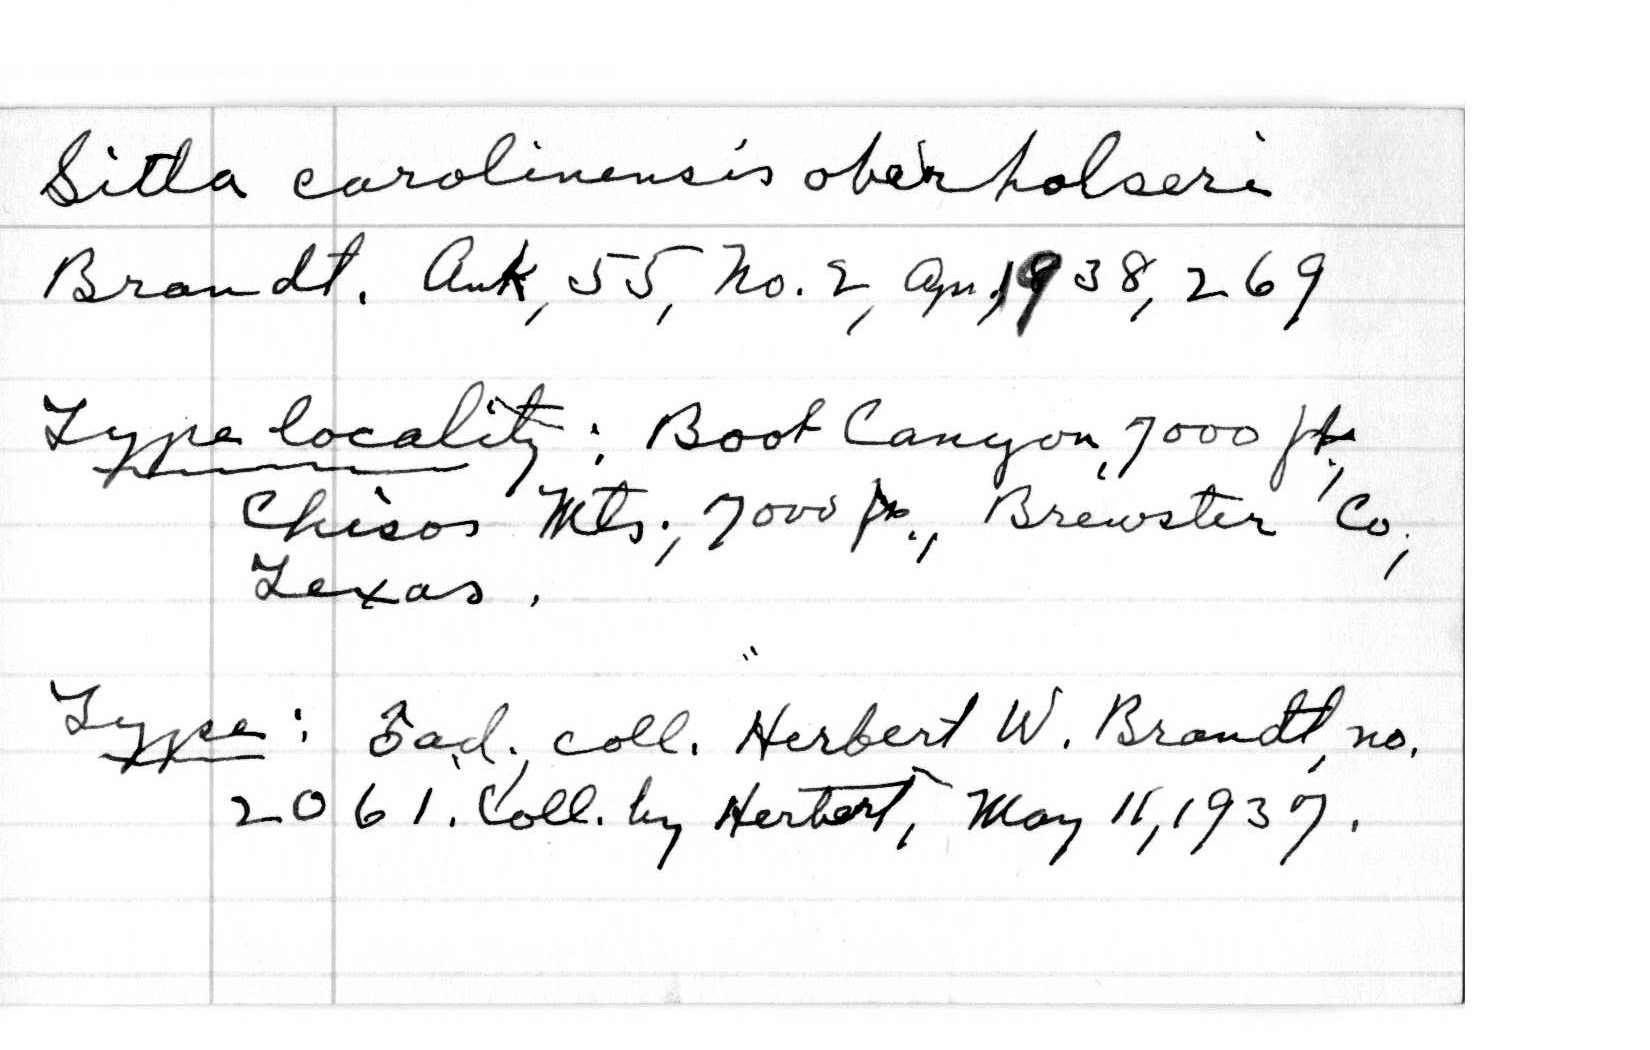 Sitta carolinensis oberholseri
Brandt. Auk, 55, No. 2, Apr., 1938, 269
Type locality: Boot Canyon, 7000 ft.,
Chisos Mts., 7000 ft., Brewster Co.,
Texas.
Type: ♂ ad., coll. Herbert W. Brandt, no.
2061. Coll. by Herbert, May 11, 1937.